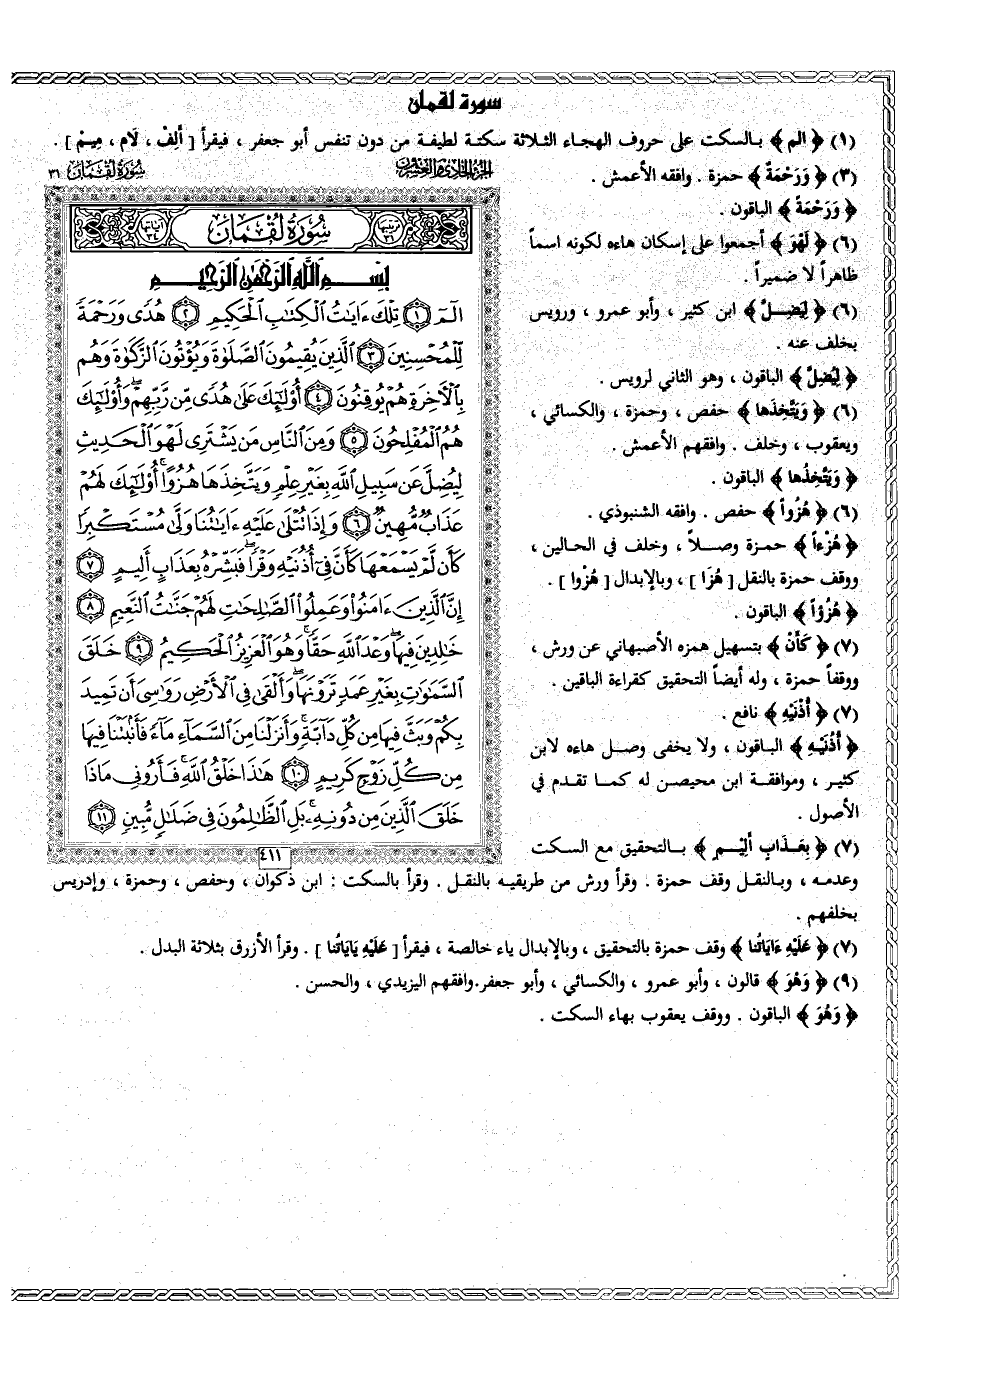 سورة لقمان
(١) ﴿ الم ﴾ بالسكت على حروف الهجاء الثلاثة سكتة لطيفة من دون تنفس أبو جعفر ، فيقرأ [ أَلِفْ ، لَام ، مِيمْ ] .
(٣) ﴿ وَرَحْمَةٌ ﴾ حمزة . وافقه الأعمش .
﴿ وَرَحْمَةً ﴾ الباقون .
(٦) ﴿ لَهْوَ ﴾ أجمعوا على إسكان هاءه لكونه اسماً
ظاهراً لا ضميراً .
(٦) ﴿ لِيَضِلَّ ﴾ ابن كثير ، وأبو عمرو ، ورويس
بخلف عنه .
﴿ لِيُضِلَّ ﴾ الباقون ، وهو الثاني لرويس .
(٦) ﴿ وَيَتَّخِذَها ﴾ حفص ، وحمزة ، والكسائي ،
ويعقوب ، وخلف . وافقهم الأعمش .
﴿ وَيَتَّخِذُها ﴾ الباقون .
(٦) ﴿ هُزُواً ﴾ حفص . وافقه الشنبوذي .
﴿ هُزْءاً ﴾ حمزة وصلاً ، وخلف في الحالين ،
ووقف حمزة بالنقل [ هُزَا ] ، وبالإبدال [ هُزْوا ] .
﴿ هُزُؤاً ﴾ الباقون .
(٧) ﴿ كَأَنْ ﴾ بتسهيل همزه الأصبهاني عن ورش ،
ووقفاً حمزة ، وله أيضاً التحقيق كقراءة الباقين .
(٧) ﴿ أُذْنَيْهِ ﴾ نافع .
﴿ أُذُنَيْهِ ﴾ الباقون ، ولا يخفى وصل هاءه لابن
كثير ، وموافقة ابن محيصن له كما تقدم في
الأصول .
(٧) ﴿ بِعَذَابٍ أَلِيْمٍ ﴾ بالتحقيق مع السكت
وعدمه ، وبالنقل وقف حمزة . وقرأ ورش من طريقيه بالنقل . وقرأ بالسكت : ابن ذكوان ، وحفص ، وحمزة ، وإدريس
بخلفهم .
(٧) ﴿ عَلَيْهِ ءَايَاتُنا ﴾ وقف حمزة بالتحقيق ، وبالإبدال ياء خالصة ، فيقرأ [ عَلَيْهِ يَايَاتُنا ] . وقرأ الأزرق بثلاثة البدل .
(٩) ﴿ وَهْوَ ﴾ قالون ، وأبو عمرو ، والكسائي ، وأبو جعفر.وافقهم اليزيدي ، والحسن .
﴿ وَهُوَ ﴾ الباقون . ووقف يعقوب بهاء السكت .
الجزء الحادي والعشرون
سورة لقمان ٣١
ترتيبها ٣١
سُورَةُ لُقْمَانَ
آياتها ٣٤
بِسْمِ اللَّهِ الرَّحْمَٰنِ الرَّحِيمِ
الٓمٓ ١ تِلْكَ ءَايَٰتُ ٱلْكِتَٰبِ ٱلْحَكِيمِ ٢ هُدًى وَرَحْمَةً
لِّلْمُحْسِنِينَ ٣ ٱلَّذِينَ يُقِيمُونَ ٱلصَّلَوٰةَ وَيُؤْتُونَ ٱلزَّكَوٰةَ وَهُم
بِٱلْءَاخِرَةِ هُمْ يُوقِنُونَ ٤ أُو۟لَٰٓئِكَ عَلَىٰ هُدًى مِّن رَّبِّهِمْ ۖ وَأُو۟لَٰٓئِكَ
هُمُ ٱلْمُفْلِحُونَ ٥ وَمِنَ ٱلنَّاسِ مَن يَشْتَرِى لَهْوَ ٱلْحَدِيثِ
لِيُضِلَّ عَن سَبِيلِ ٱللَّهِ بِغَيْرِ عِلْمٍ وَيَتَّخِذَهَا هُزُوًا ۚ أُو۟لَٰٓئِكَ لَهُمْ
عَذَابٌ مُّهِينٌ ٦ وَإِذَا تُتْلَىٰ عَلَيْهِ ءَايَٰتُنَا وَلَّىٰ مُسْتَكْبِرًا
كَأَن لَّمْ يَسْمَعْهَا كَأَنَّ فِىٓ أُذُنَيْهِ وَقْرًا ۖ فَبَشِّرْهُ بِعَذَابٍ أَلِيمٍ ٧
إِنَّ ٱلَّذِينَ ءَامَنُوا۟ وَعَمِلُوا۟ ٱلصَّٰلِحَٰتِ لَهُمْ جَنَّٰتُ ٱلنَّعِيمِ ٨
خَٰلِدِينَ فِيهَا ۖ وَعْدَ ٱللَّهِ حَقًّا ۚ وَهُوَ ٱلْعَزِيزُ ٱلْحَكِيمُ ٩ خَلَقَ
ٱلسَّمَٰوَٰتِ بِغَيْرِ عَمَدٍ تَرَوْنَهَا ۖ وَأَلْقَىٰ فِى ٱلْأَرْضِ رَوَٰسِىَ أَن تَمِيدَ
بِكُمْ وَبَثَّ فِيهَا مِن كُلِّ دَآبَّةٍ ۚ وَأَنزَلْنَا مِنَ ٱلسَّمَآءِ مَآءً فَأَنۢبَتْنَا فِيهَا
مِن كُلِّ زَوْجٍ كَرِيمٍ ١٠ هَٰذَا خَلْقُ ٱللَّهِ فَأَرُونِى مَاذَا
خَلَقَ ٱلَّذِينَ مِن دُونِهِۦ ۚ بَلِ ٱلظَّٰلِمُونَ فِى ضَلَٰلٍ مُّبِينٍ ١١
٤١١